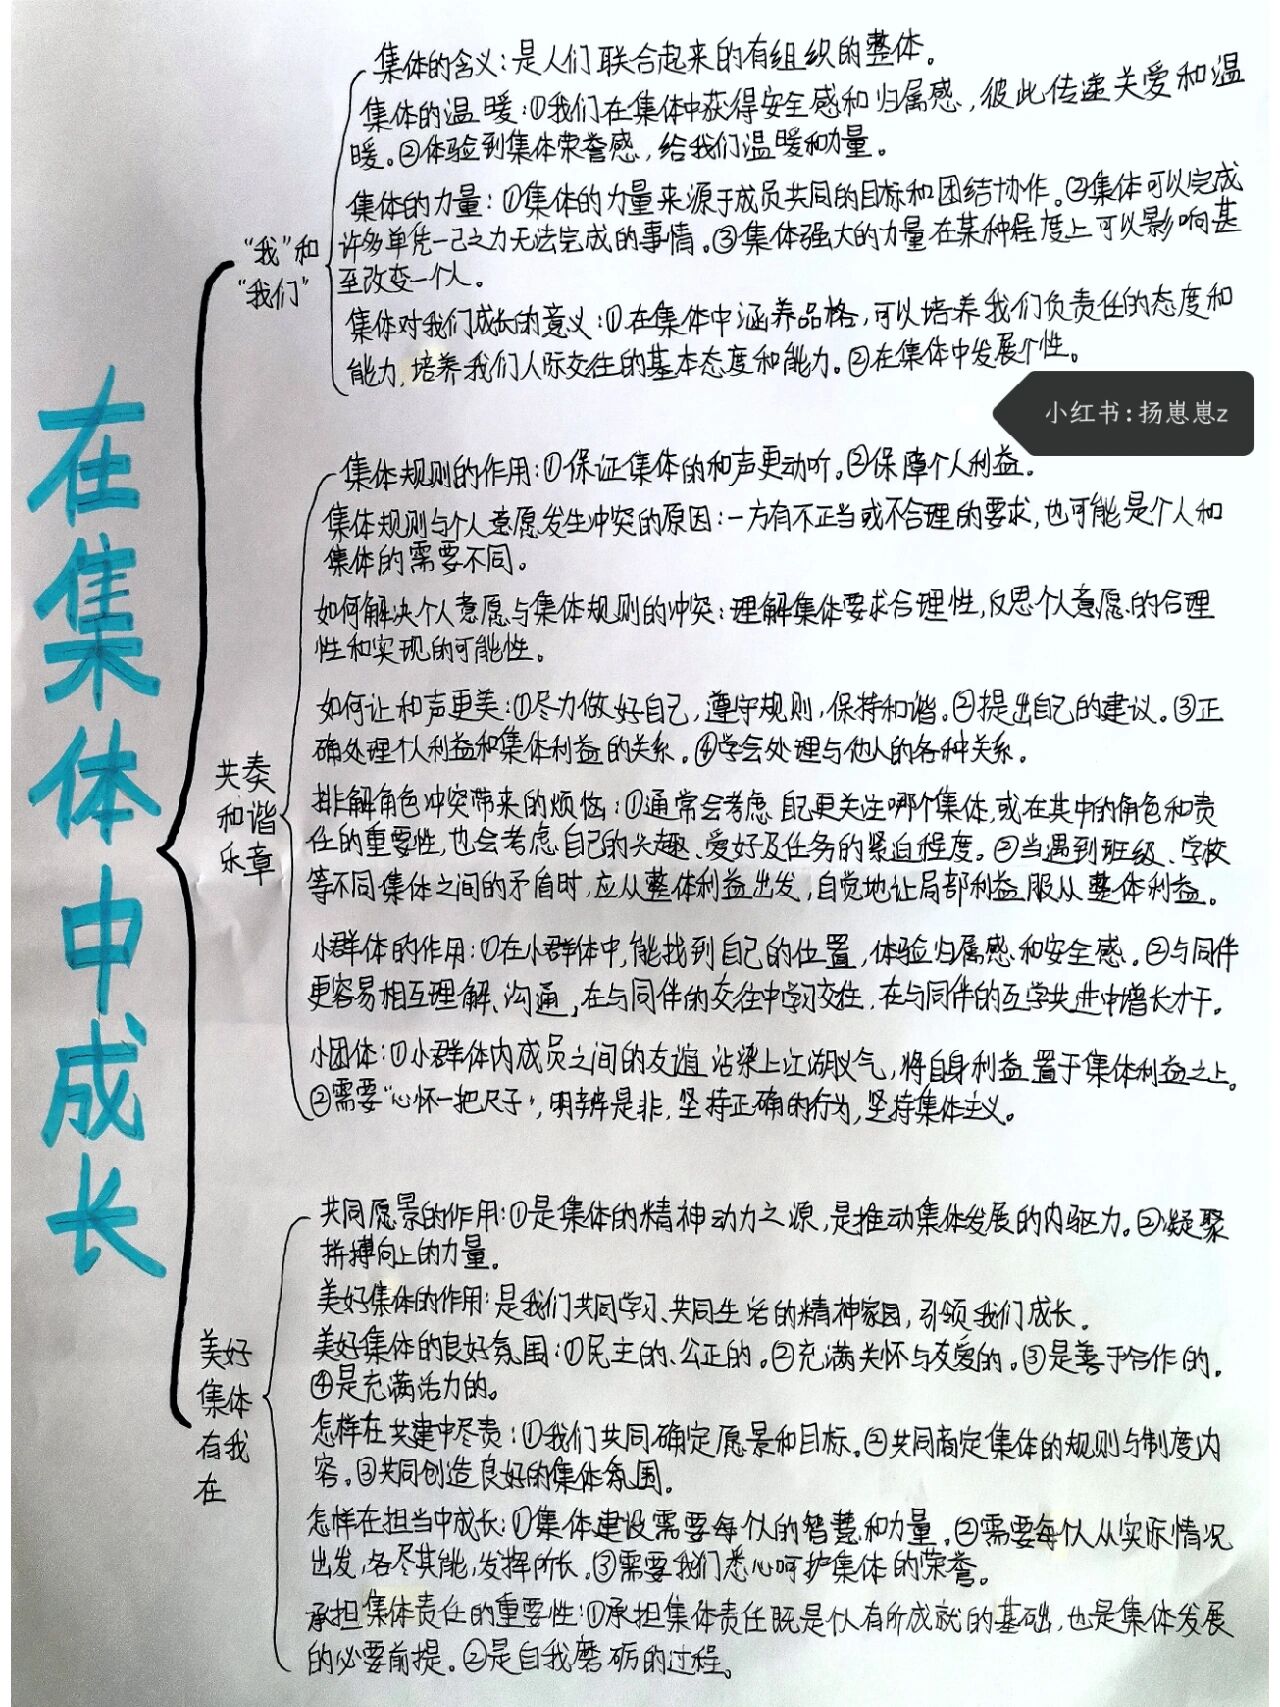 在集体中成长
“我”和
“我们”
集体的含义:是人们联合起来的有组织的整体。
集体的温暖:①我们在集体中获得安全感和归属感,彼此传递关爱和温
暖。②体验到集体荣誉感,给我们温暖和力量。
集体的力量:①集体的力量来源于成员共同的目标和团结协作。②集体可以完成
许多单凭一己之力无法完成的事情。③集体强大的力量在某种程度上可以影响甚
至改变一个人。
集体对我们成长的意义:①在集体中涵养品格,可以培养我们负责任的态度和
能力,培养我们人际交往的基本态度和能力。②在集体中发展个性。
小红书:扬崽崽z
共奏
和谐
乐章
集体规则的作用:①保证集体的和声更动听。②保障个人利益。
集体规则与个人意愿发生冲突的原因:一方有不正当或不合理的要求,也可能是个人和
集体的需要不同。
如何解决个人意愿与集体规则的冲突:理解集体要求合理性,反思个人意愿的合理
性和实现的可能性。
如何让和声更美:①尽力做好自己,遵守规则,保持和谐。②提出自己的建议。③正
确处理个人利益和集体利益的关系。④学会处理与他人的各种关系。
排解角色冲突带来的烦恼:①通常会考虑自己更关注哪个集体,或在其中的角色和责
任的重要性,也会考虑自己的兴趣、爱好及任务的紧迫程度。②当遇到班级、学校
等不同集体之间的矛盾时,应从整体利益出发,自觉地让局部利益服从整体利益。
小群体的作用:①在小群体中,能找到自己的位置,体验归属感和安全感。②与同伴
更容易相互理解、沟通,在与同伴的交往中学习交往,在与同伴的互学共进中增长才干。
小团体:①小群体内成员之间的友谊沾染上江湖义气,将自身利益置于集体利益之上。
②需要“心怀一把尺子”,明辨是非,坚持正确的行为,坚持集体主义。
美好
集体
有我
在
共同愿景的作用:①是集体的精神动力之源,是推动集体发展的内驱力。②凝聚
拼搏向上的力量。
美好集体的作用:是我们共同学习、共同生活的精神家园,引领我们成长。
美好集体的良好氛围:①民主的、公正的。②充满关怀与友爱的。③是善于合作的。
④是充满活力的。
怎样在共建中尽责:①我们共同确定愿景和目标。②共同商定集体的规则与制度内
容。③共同创造良好的集体氛围。
怎样在担当中成长:①集体建设需要每个人的智慧和力量。②需要每个人从实际情况
出发,各尽其能,发挥所长。③需要我们悉心呵护集体的荣誉。
承担集体责任的重要性:①承担集体责任既是个人有所成就的基础,也是集体发展
的必要前提。②是自我磨砺的过程。